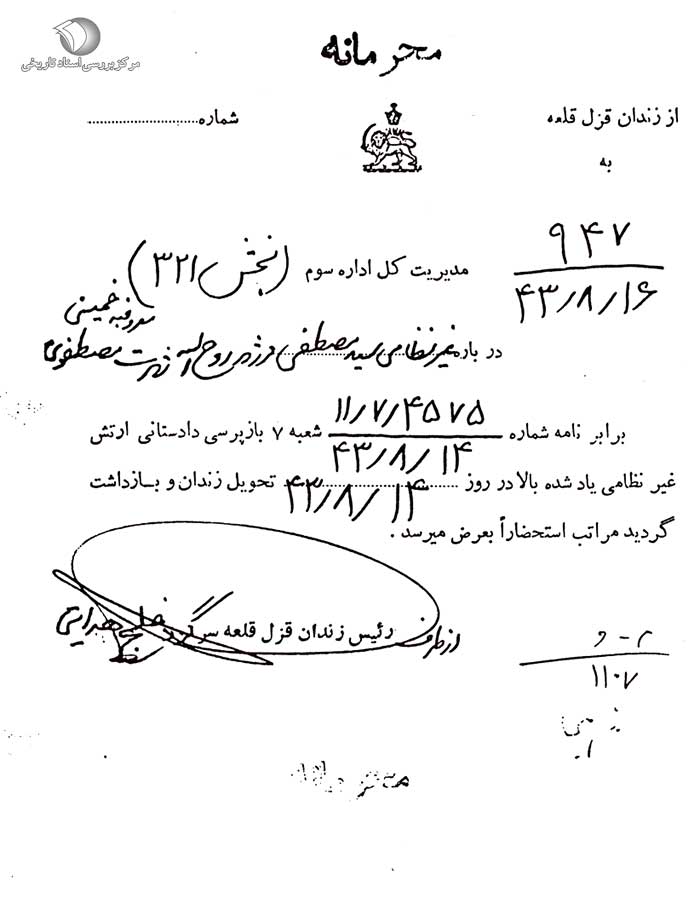 مرکز بررسی اسناد تاریخی
محرمانه
از زندان قزل قلعه
شماره
به
۹۴۷
۴۳/۸/۱۶
مدیریت کل اداره سوم (بخش ۳۲۱)
معروف به خمینی
در باره غیرنظامی سید مصطفی فرزند روح اله شهرت مصطفوی
برابر نامه شماره ۱۱/۷/۴۵۷۵ شعبه ۷ بازپرسی دادستانی ارتش
۴۳/۸/۱۴
غیر نظامی یاد شده بالا در روز ۴۳/۸/۱۴ تحویل زندان و بازداشت
گردید مراتب استحضاراً بعرض میرسد.
از طرف رئیس زندان قزل قلعه سرگرد
۱۱۰۷
محرمانه